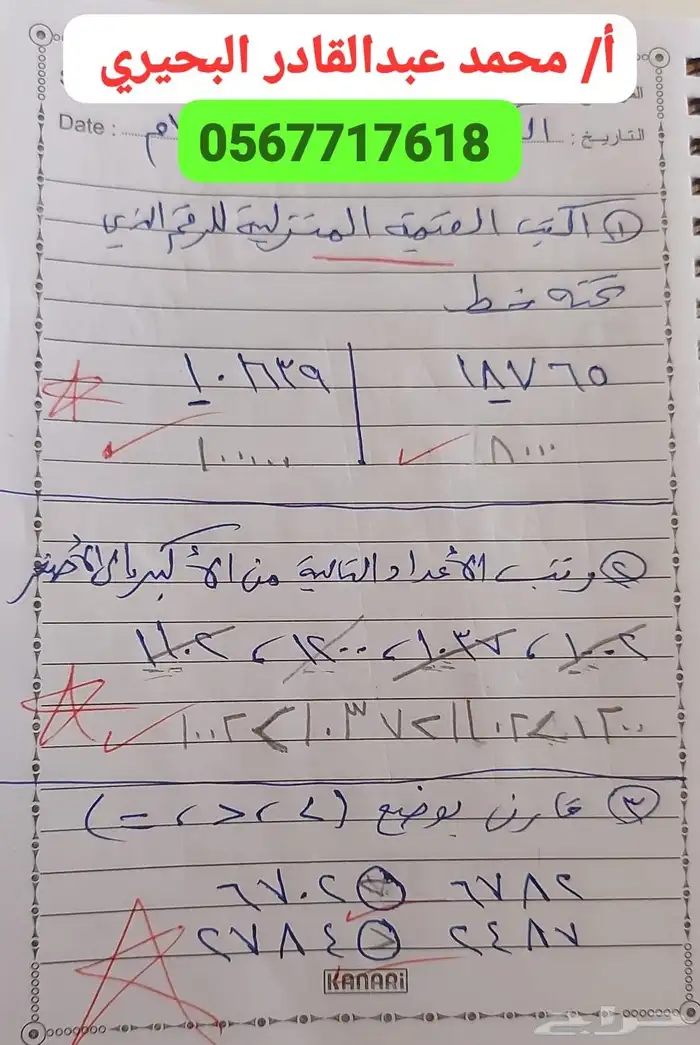 أ/ محمد عبدالقادر البحيري
0567717618
Date :
التاريخ :
١ اكتب القيمة المنزلية للرقم الذي
تحته خط
١٨٧٦٥
٨٠٠٠
٢ رتب الأعداد التالية من الأكبر إلى الأصغر
١٠٠٢ ، ١٠٣٧ ، ١٢٠٠ ، ١١٠٢
١٢٠٠ > ١١٠٢ > ١٠٣٧ > ١٠٠٢
٣ قارن بوضع (> ، < ، =)
٦٧٨٢ > ٦٧٠٢
٢٤٨٧ < ٢٧٨٤
KANARI
حراج